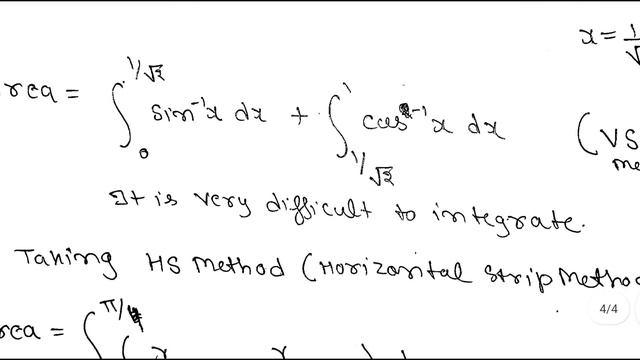 x = 1/√
rea = ∫_0^{1/√2} sin⁻¹x dx + ∫_{1/√2}^1 cos⁻¹x dx (VS
me
It is very difficult to integrate.
Taking HS Method (Horizontal Strip Metho
4/4
rea = ∫^{π/4} (x x